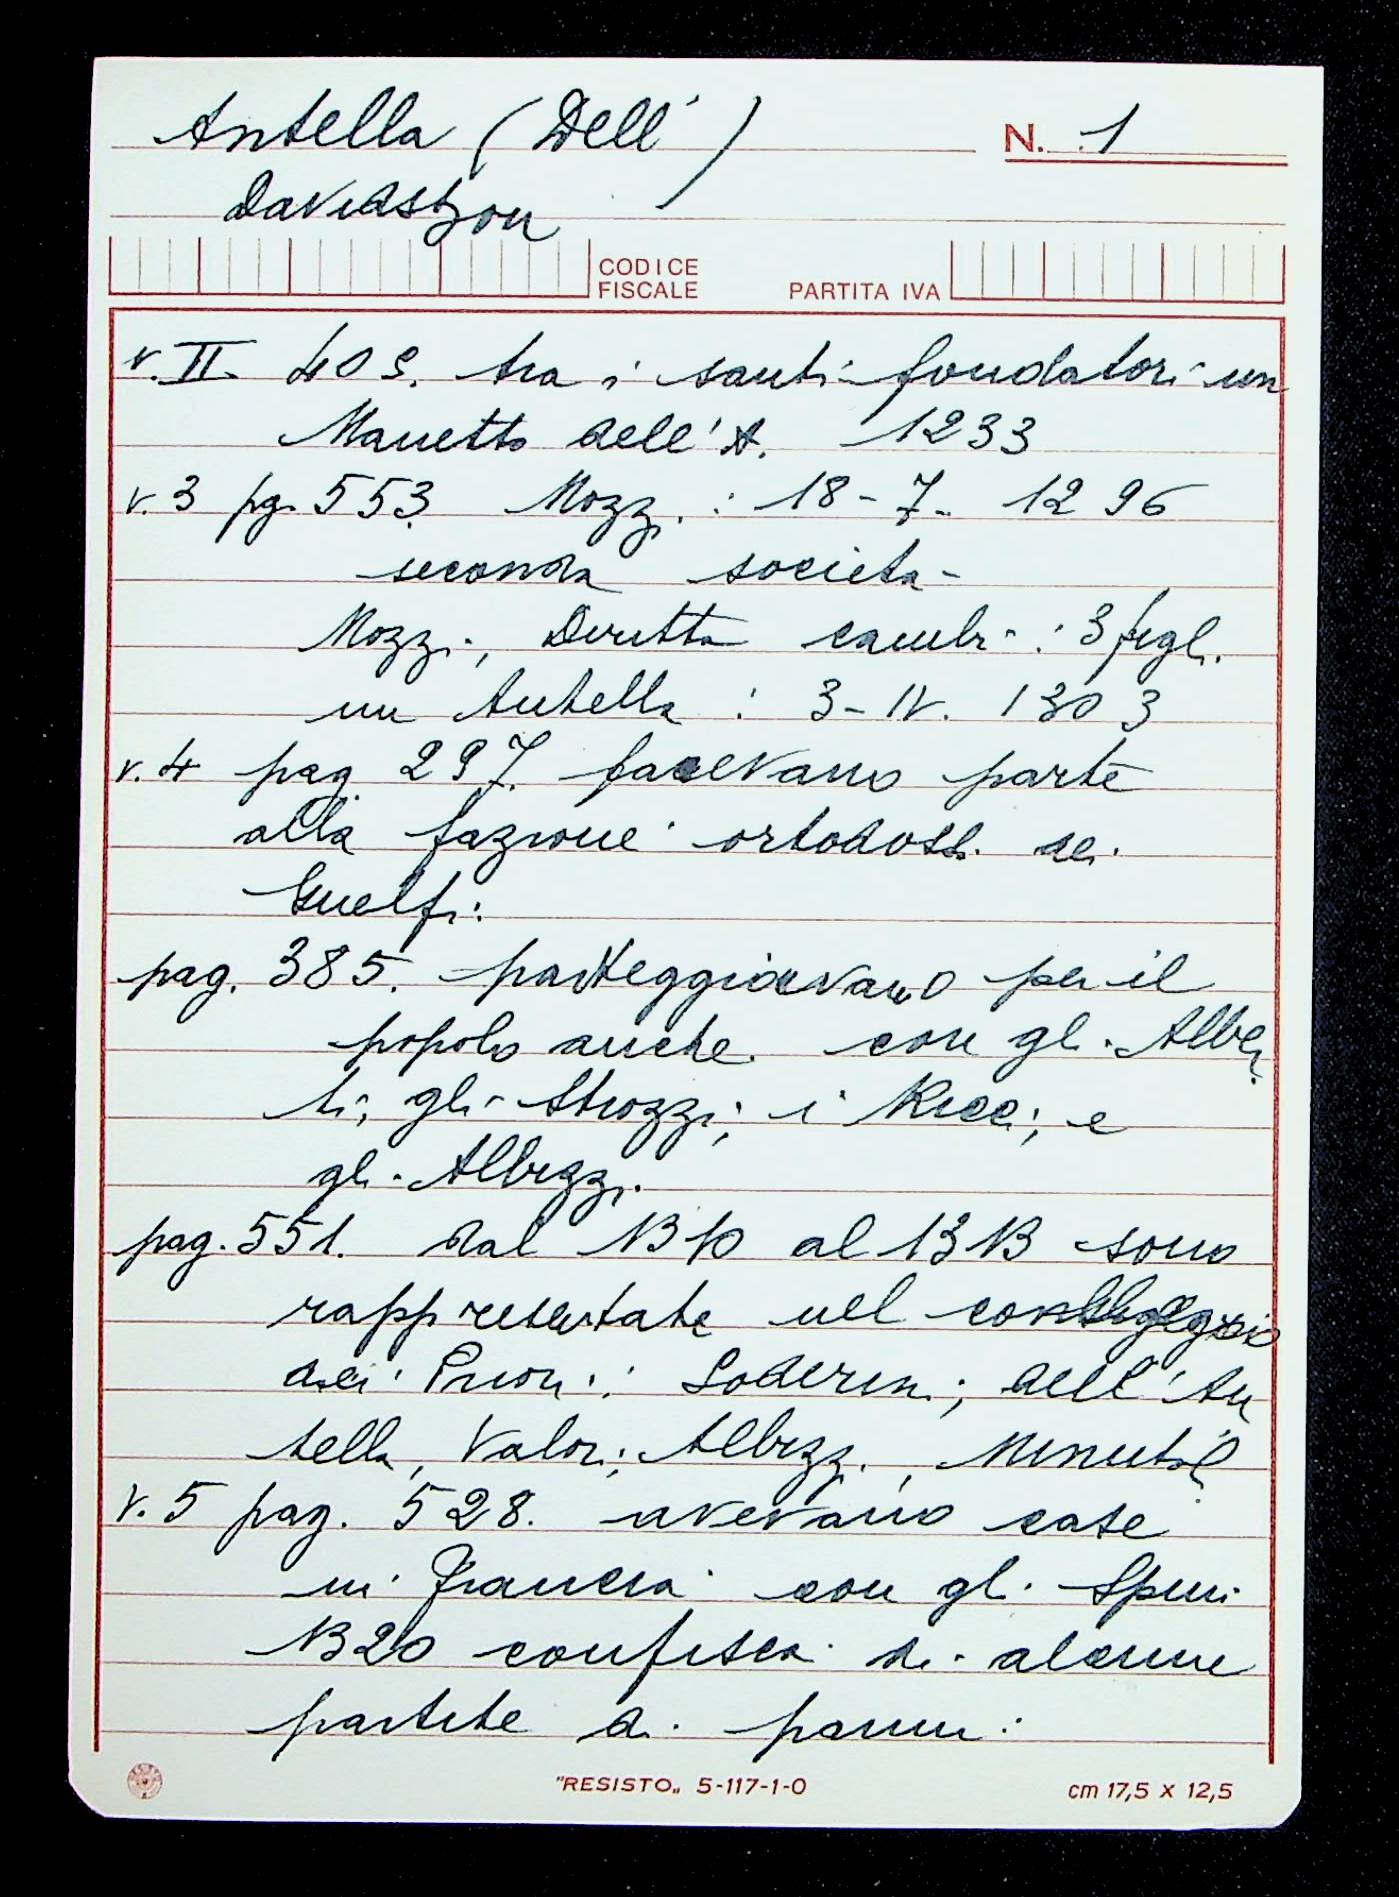 Antella (Dell')
N. 1
Davidshon
CODICE
FISCALE
PARTITA IVA
v. II. 409. tra i santi fondatori un
Manetto dell'A. 1233
v. 3 pg. 553 Mozzi : 18-7- 1296
seconda societa-
Mozzi, cambi : 3 figli
un Antella : 3-IV. 1303
v. 4 pag 297. facevano parte
alla fazione ortodossa dei
Guelfi:
pag. 385. parteggiavano per il
popolo anche con gli Alber
ti, gli Strozzi, i Ricci, e
gli Albizzi.
pag. 551. dal 1310 al 1313 sono
rappresentate nel collegio
dei Priori: Soderini, dell'An
tella, Valori, Albizzi, Minutoli
v. 5 pag. 528. avevano case
in Francia con gli Spini
1320 confisca di alcune
partite di panni.
"RESISTO„ 5-117-1-0
cm 17,5 x 12,5